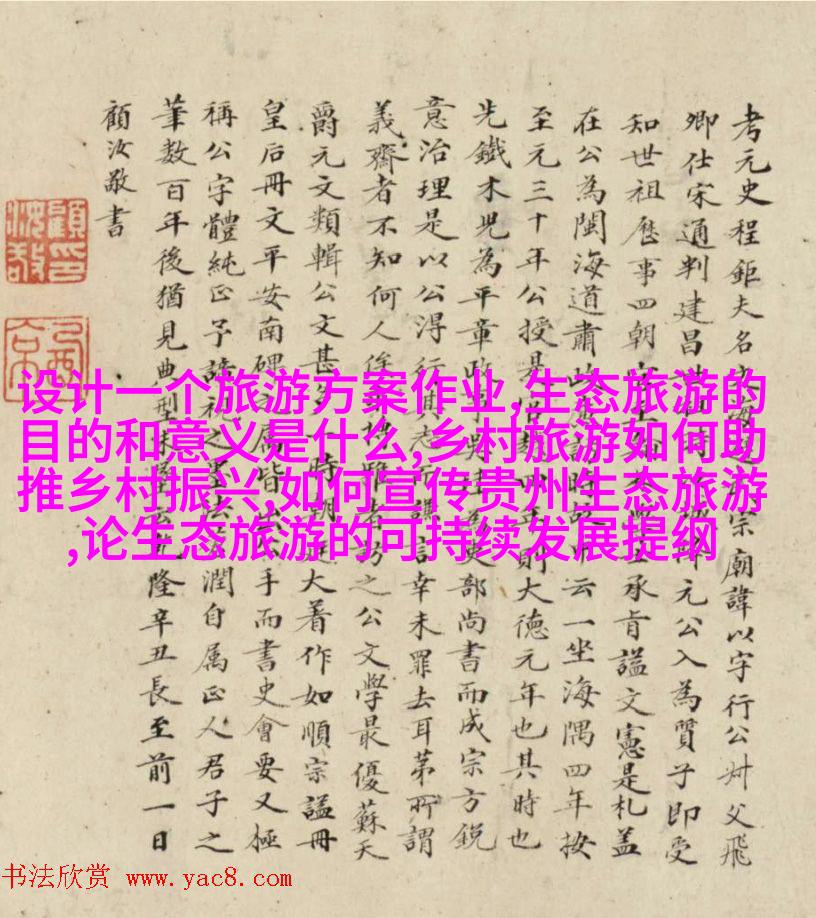 设计一个旅游方案作业,生态旅游的
目的和意义是什么,乡村旅游如何助
推乡村振兴,如何宣传贵州生态旅游
,论生态旅游的可持续发展提纲
考元史程鉅夫名宗廟諱以字行公叔父飛
卿仕宋通判建昌降元公入為質子即受
知世祖歷事四朝承肯謚文憲是札蓋
在公為閩海道肅政云一坐海隅四年按
至元三十年公授是則大德元年也其時也
先鐵木兒為平章政事吏部尚書而成宗方銳
意治理是以公得行其志謙言幸未罪去耳第所謂
義齋者不知何人俟博雅者訪之公文學最優蘇天
爵元文類輯公文甚一時朝廷大著作如順宗謚冊
皇后冊文平安南碑之屬皆出公手而書史會要又極
稱公字體純正予諦視之墨潤自属正人君子之
筆数百年後猶見典型乾隆辛丑長至前一日
顧汝敬書
书法欣赏 www.yac8.com